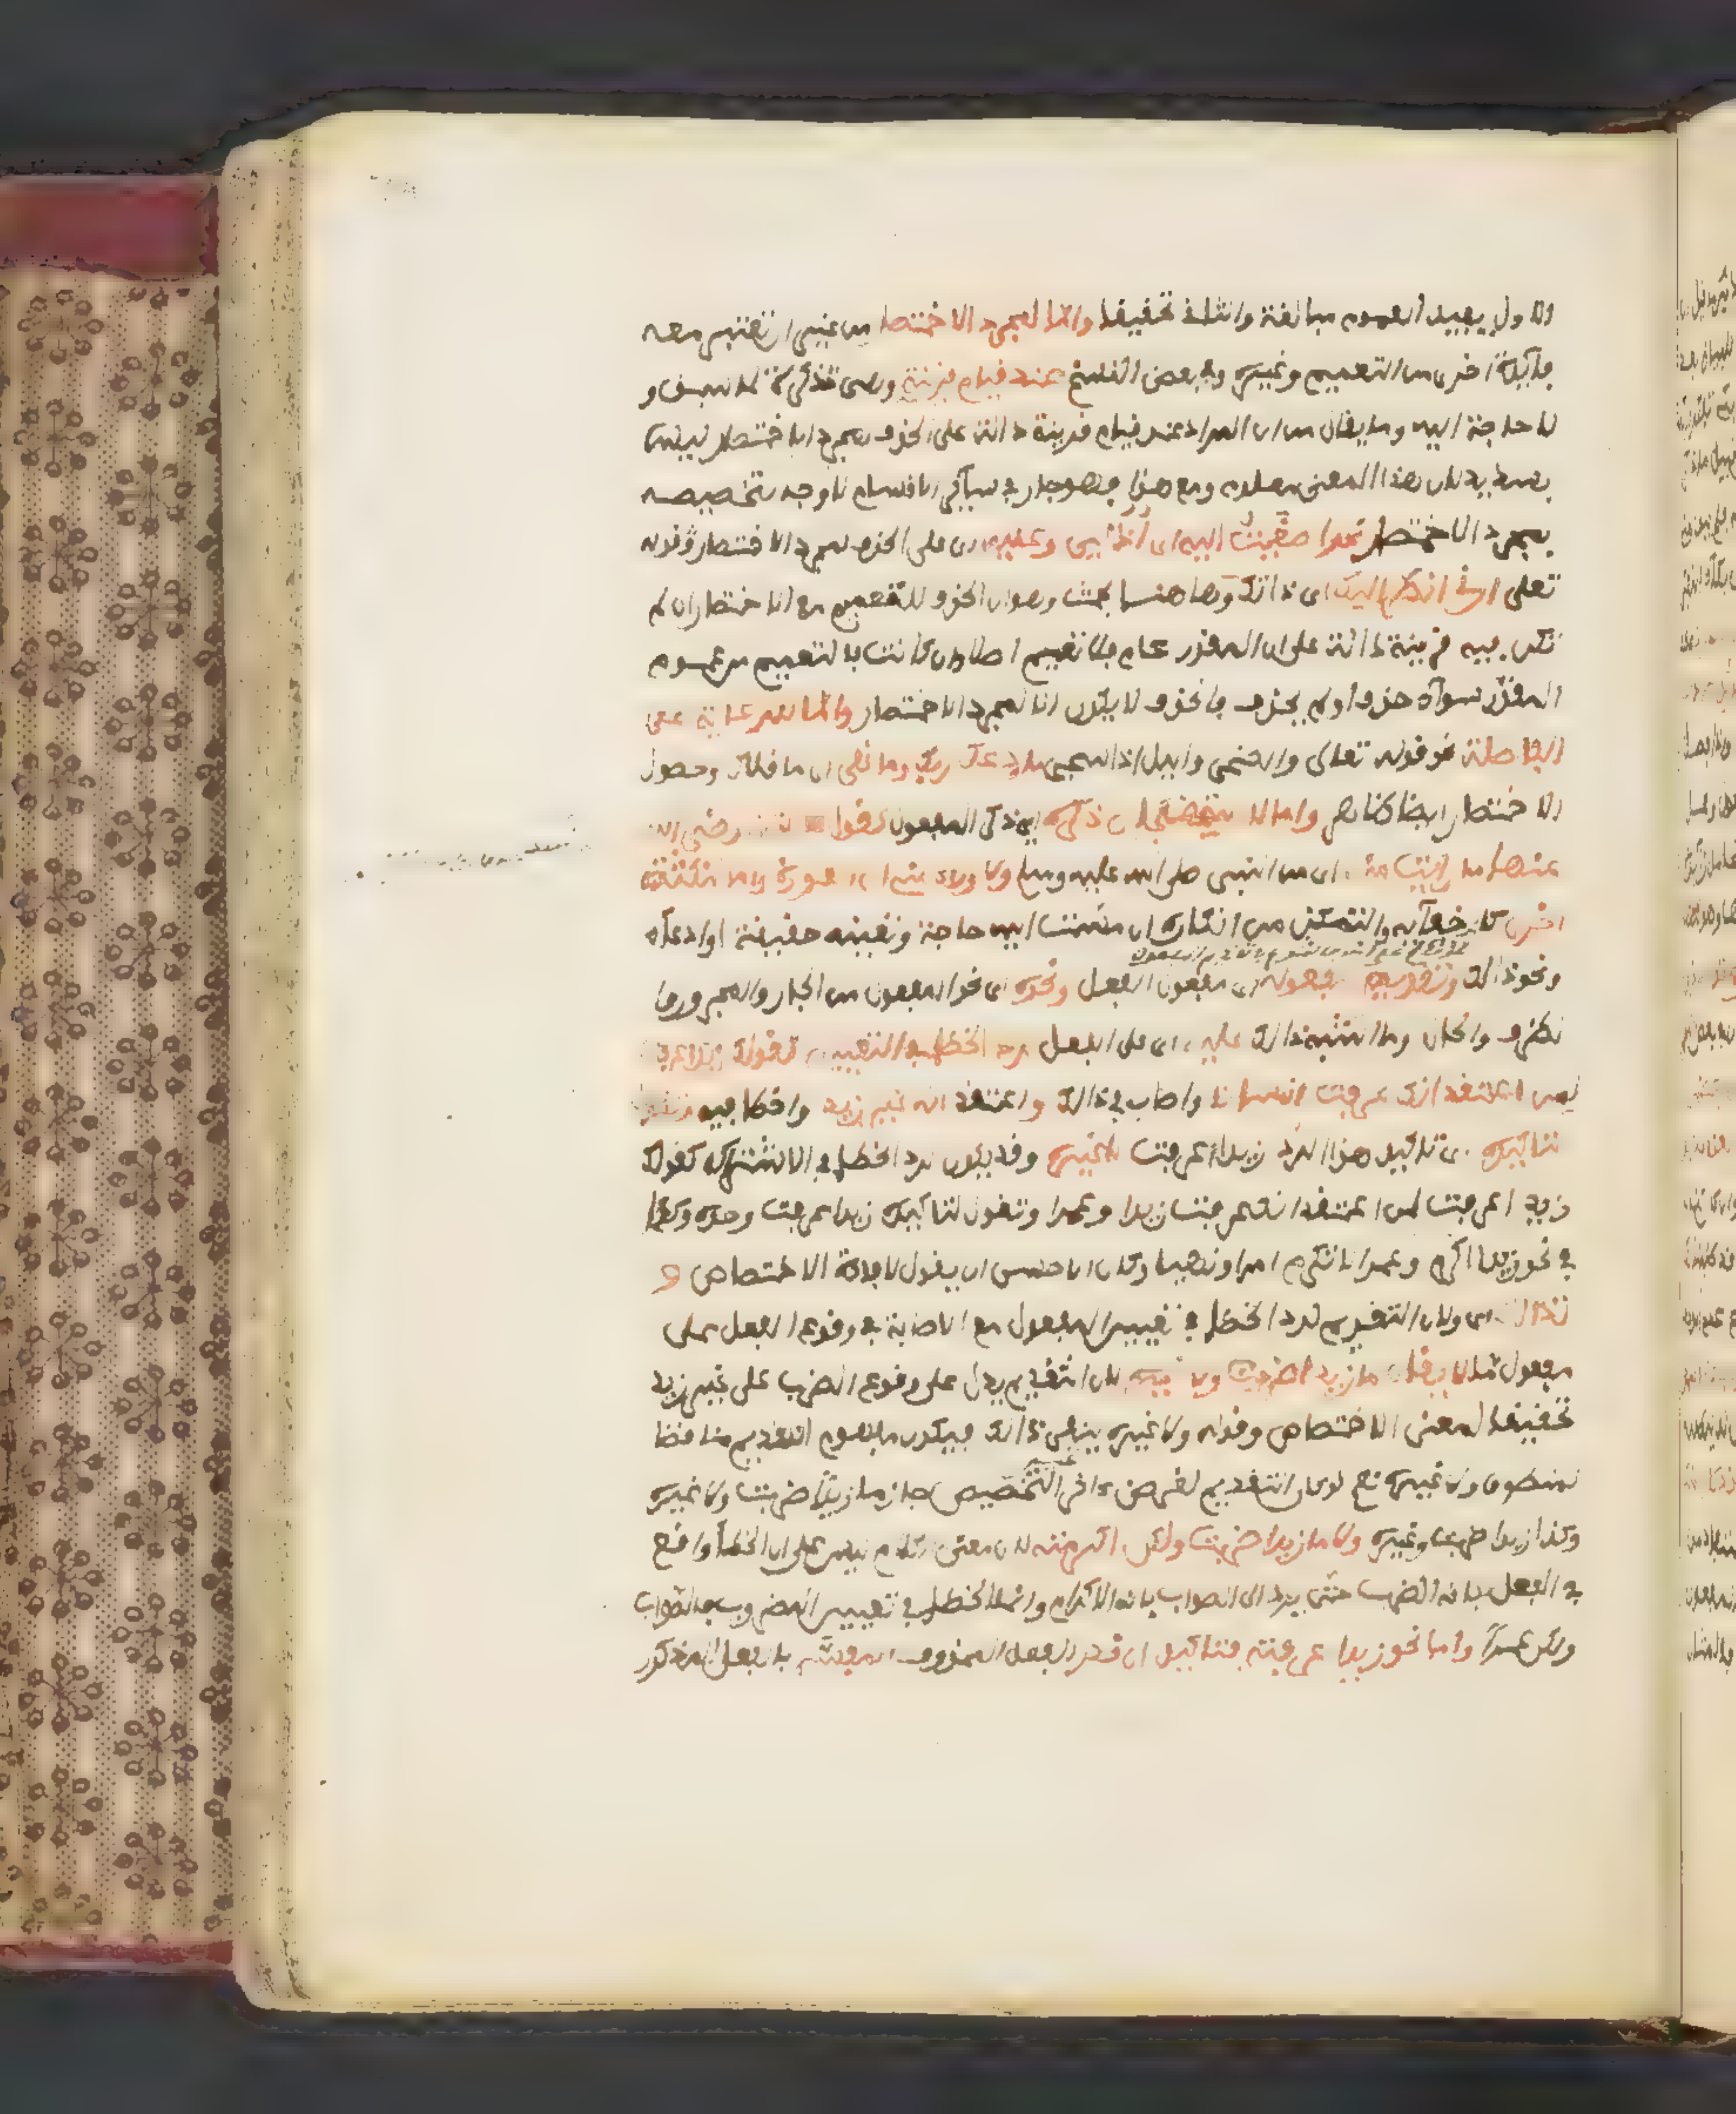 والاول يفيد العموم مبالغة والثانى تحقيقا واما لمجرد الاختصار من غير ان تعتبر معه
فايدة اخرى من التعميم وغيره وفى بعض النسخ عند قيام قرينة وهى تذكرة لما سبق و
لا حاجة اليه وما يقال من ان المراد عند قيام قرينة دالة على الحذف لمجرد الاختصار ليس
بسديد لان هذا المعنى معلوم ومع هذا فهو جار فى سائر الاقسام لا وجه لتخصيصه
بمجرد الاختصار نحو اصغيت اليه اى اذنى وعليه اى على الحذف لمجرد الاختصار قوله
تعلى ارنى انظر اليك اى ذاتك وهاهنا بحث وهو ان الحذف للتعميم مع الاختصار ان لم
تكن فيه قرينة دالة على ان المقدر عام فلا تعميم اصلا وان كانت فالتعميم من عموم
المقدر سوآء حذف او لم يحذف فالحذف لا يكون الا لمجرد الاختصار واما للرعاية على
الفاصلة نحو قوله تعلى والضحى واليل اذا سجى ما ودعك ربك وما قلى اى ما قلاك وحصول
الاختصار ايضا ظاهر واما لاستهجان ذكره اى ذكر المفعول كقول رضى الله
عنها ما رايت منه اى من النبى صلى الله عليه وسلم ولا راى منى اى العورة واما لنكتة
اخرى كاخفآيه والتمكن من انكاره ان مست اليه حاجة وتعينه حقيقة او ادعآء
ونحو ذالك وتقديم مفعوله اى مفعول الفعل ونحوه اى نحو المفعول من الجار والمجرور وا
لظرف والحال وما اشبه ذالك عليه اى على الفعل لرد الخطا فى التعيين كقولك زيدا عرفت
لمن اعتقد انك عرفت انسانا واصاب فى ذالك واعتقد انه غير زيد واخطا فيه وتقول
لتاكيده اى تاكيد هذا الرد زيدا عرفت لا غيره وقد يكون لرد الخطا فى الاشتراك كقولك
زيدا عرفت لمن اعتقد انك عرفت زيدا وعمرا وتقول لتاكيده زيدا عرفت وحده وكذا
فى نحو زيدا اكرم وعمرا لا تكرم امرا ونهيا وكان الاحسن ان يقول لافادة الاختصاص و
لذالك اى ولان التقديم لرد الخطا فى تعيين المفعول مع الاصابة فى وقوع الفعل على
مفعول ما لا يقال ما زيدا ضربت ولا غيره لان التقديم يدل على وقوع الضرب على غير زيد
تحقيقا لمعنى الاختصاص وقوله ولا غيره ينفى ذالك فيكون مفهوم التقديم مناقضا
لمنطوق ولا غيره نعم لو كان التقديم لغرض اخر غير التخصيص جاز ما زيدا ضربت ولا غيره
وكذا زيدا ضربت وغيره ولا ما زيدا ضربت ولكن اكرمته لان معنى الكلام ليس على ان الخطا واقع
فى الفعل بانه الضرب حتى يرد الى الصواب بانه الاكرام وانما الخطا فى تعيين المضروب فالصواب
ولكن عمرا واما نحو زيدا عرفته فتاكيد ان قدر الفعل المحذوف المفسر بالفعل المذكور